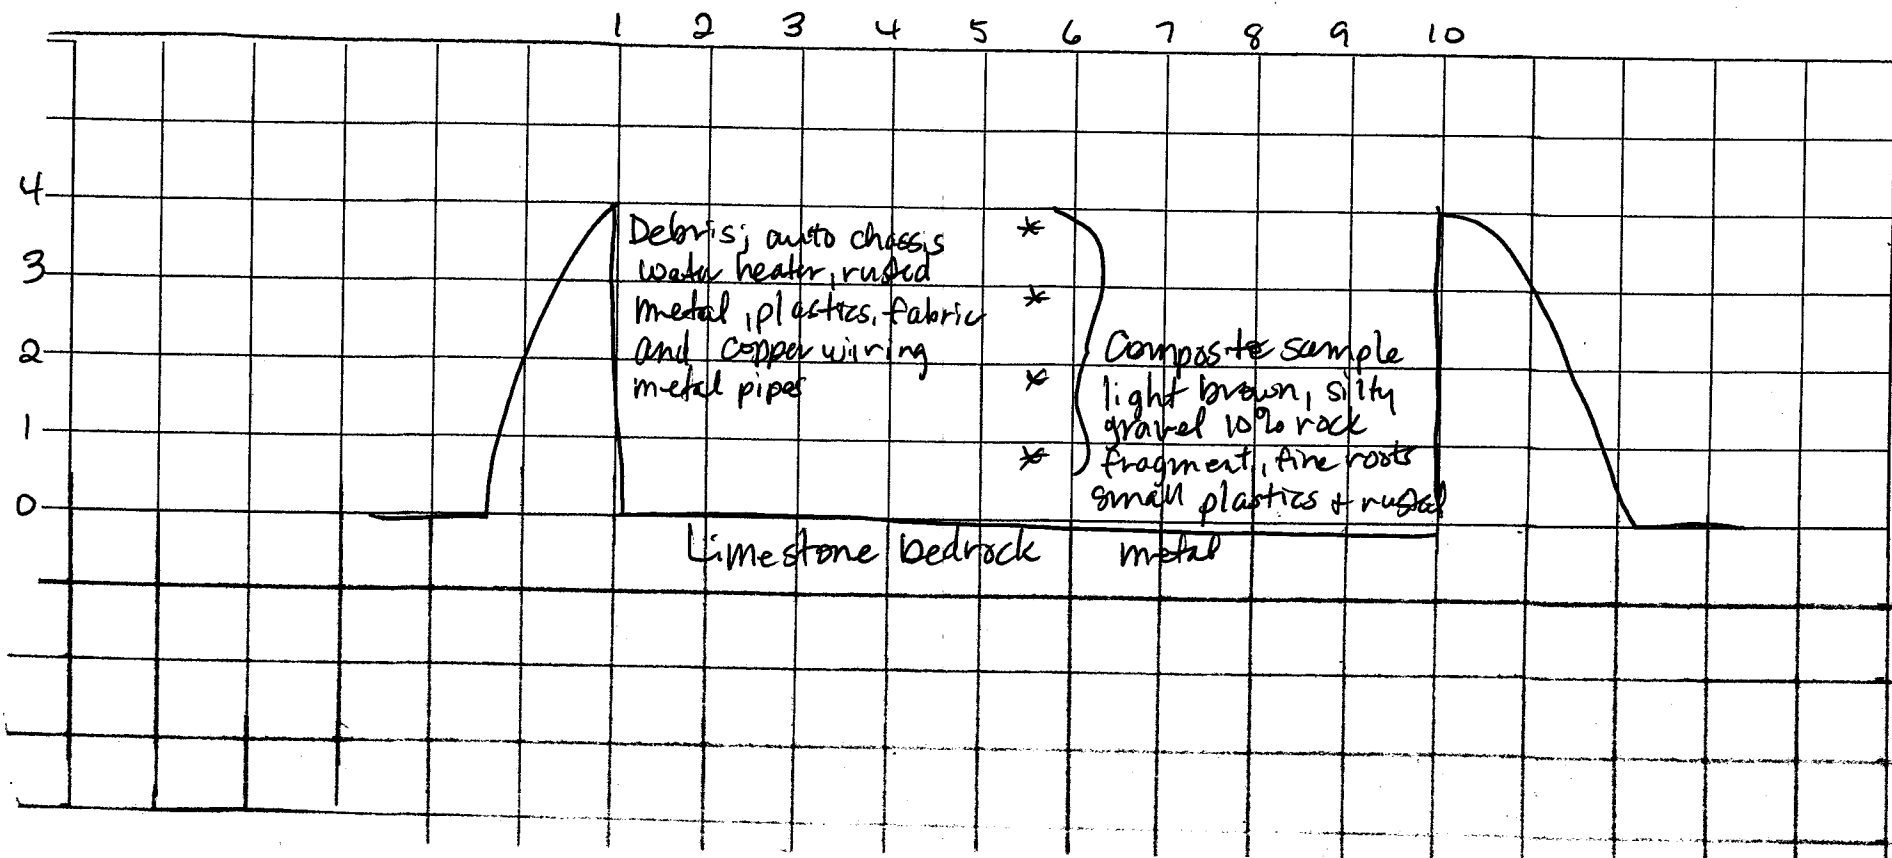 1 2 3 4 5 6 7 8 9 10
4
3
2
1
0
Debris; auto chassis
water heater, rusted
metal, plastics, fabric
and copper wiring
metal pipes
*
*
*
*
Composite sample
light brown, silty
gravel 10% rock
fragment, fine roots
small plastics + rusted
metal
Limestone bedrock